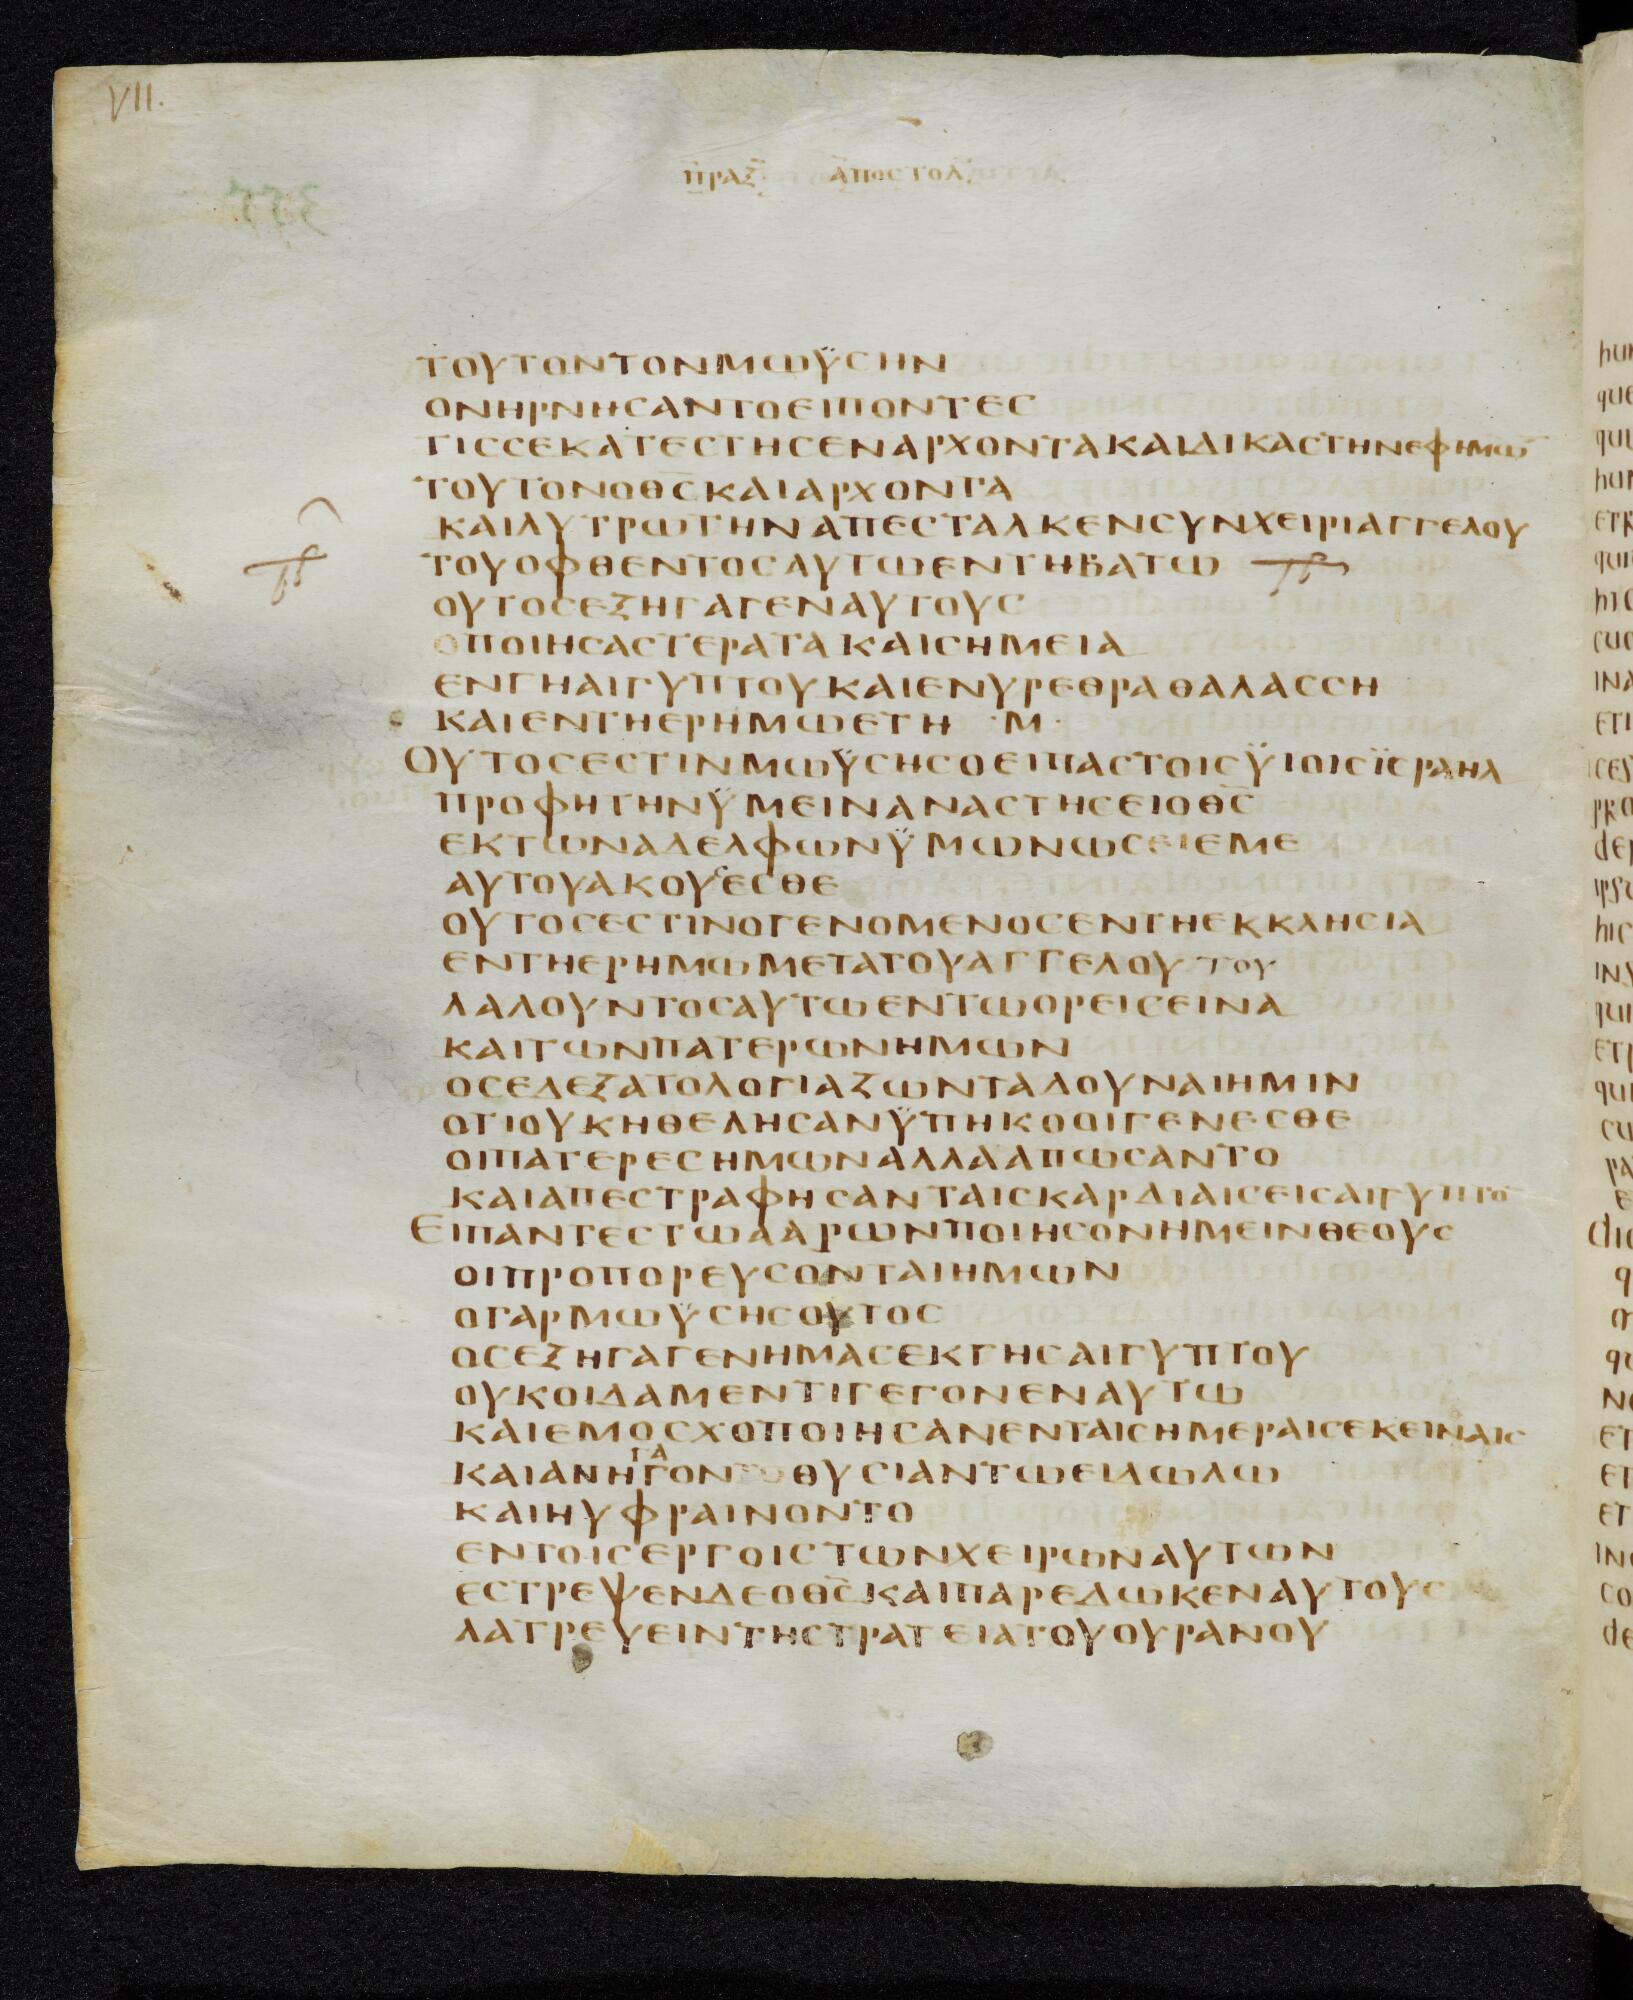 VII.
ΠΡΑΞ ΑΠΟСΤΟΛ
ΤΟΥΤΟΝΤΟΝΜΩΫСΗΝ
ΟΝΗΡΝΗСΑΝΤΟΕΙΠΟΝΤΕС
ΤΙССΕΚΑΤΕСΤΗСΕΝΑΡΧΟΝΤΑΚΑΙΔΙΚΑСΤΗΝΕΦΗΜΩ̅
ΤΟΥΤΟΝΟΘ̅С̅ΚΑΙΑΡΧΟΝΤΑ
ΚΑΙΛΥΤΡΩΤΗΝΑΠΕСΤΑΛΚΕΝСΥΝΧΕΙΡΙΑΓΓΕΛΟΥ
ΤΟΥΟΦΘΕΝΤΟСΑΥΤΩΕΝΤΗΒΑΤΩ
ΟΥΤΟСΕΞΗΓΑΓΕΝΑΥΤΟΥС
ΟΠΟΙΗСΑСΤΕΡΑΤΑΚΑΙСΗΜΕΙΑ
ΕΝΓΗΑΙΓΥΠΤΟΥΚΑΙΕΝΥΡΕΘΡΑΘΑΛΑССΗ
ΚΑΙΕΝΤΗΕΡΗΜΩΕΤΗ ·Μ·
ΟΥΤΟСΕСΤΙΝΜΩΫСΗСΟΕΙΠΑСΤΟΙСΫΙΟΙСΪСΡΑΗΛ
ΠΡΟΦΗΤΗΝΫΜΕΙΝΑΝΑСΤΗСΕΙΟΘ̅С̅
ΕΚΤΩΝΑΔΕΛΦΩΝΫΜΩΝΩСΕΙΕΜΕ
ΑΥΤΟΥΑΚΟΥΕСΘΕ
ΟΥΤΟСΕСΤΙΝΟΓΕΝΟΜΕΝΟСΕΝΤΗΕΚΚΛΗСΙΑ
ΕΝΤΗΕΡΗΜΩΜΕΤΑΤΟΥΑΓΓΕΛΟΥΤΟΥ
ΛΑΛΟΥΝΤΟСΑΥΤΩΕΝΤΩΟΡΕΙСΕΙΝΑ
ΚΑΙΤΩΝΠΑΤΕΡΩΝΗΜΩΝ
ΟСΕΔΕΞΑΤΟΛΟΓΙΑΖΩΝΤΑΔΟΥΝΑΙΗΜΙΝ
ΟΤΙΟΥΚΗΘΕΛΗСΑΝΫΠΗΚΟΟΙΓΕΝΕСΘΕ
ΟΙΠΑΤΕΡΕСΗΜΩΝΑΛΛΑΑΠΩСΑΝΤΟ
ΚΑΙΑΠΕСΤΡΑΦΗСΑΝΤΑΙСΚΑΡΔΙΑΙСΕΙСΑΙΓΥΠΤΟ̅
ΕΙΠΑΝΤΕСΤΩΑΑΡΩΝΠΟΙΗСΟΝΗΜΕΙΝΘΕΟΥС
ΟΙΠΡΟΠΟΡΕΥСΟΝΤΑΙΗΜΩΝ
ΟΓΑΡΜΩΫСΗСΟΥΤΟС
ΟСΕΞΗΓΑΓΕΝΗΜΑСΕΚΓΗСΑΙΓΥΠΤΟΥ
ΟΥΚΟΙΔΑΜΕΝΤΙΓΕΓΟΝΕΝΑΥΤΩ
ΚΑΙΕΜΟСΧΟΠΟΙΗСΑΝΕΝΤΑΙСΗΜΕΡΑΙСΕΚΕΙΝΑΙС
ΓΑ
ΚΑΙΑΝΗΓΟΝΤΟΘΥСΙΑΝΤΩΕΙΔΩΛΩ
ΚΑΙΗΥΦΡΑΙΝΟΝΤΟ
ΕΝΤΟΙСΕΡΓΟΙСΤΩΝΧΕΙΡΩΝΑΥΤΩΝ
ΕСΤΡΕΨΕΝΔΕΟΘ̅С̅ΚΑΙΠΑΡΕΔΩΚΕΝΑΥΤΟΥС
ΛΑΤΡΕΥΕΙΝΤΗСΤΡΑΤΕΙΑΤΟΥΟΥΡΑΝΟΥ